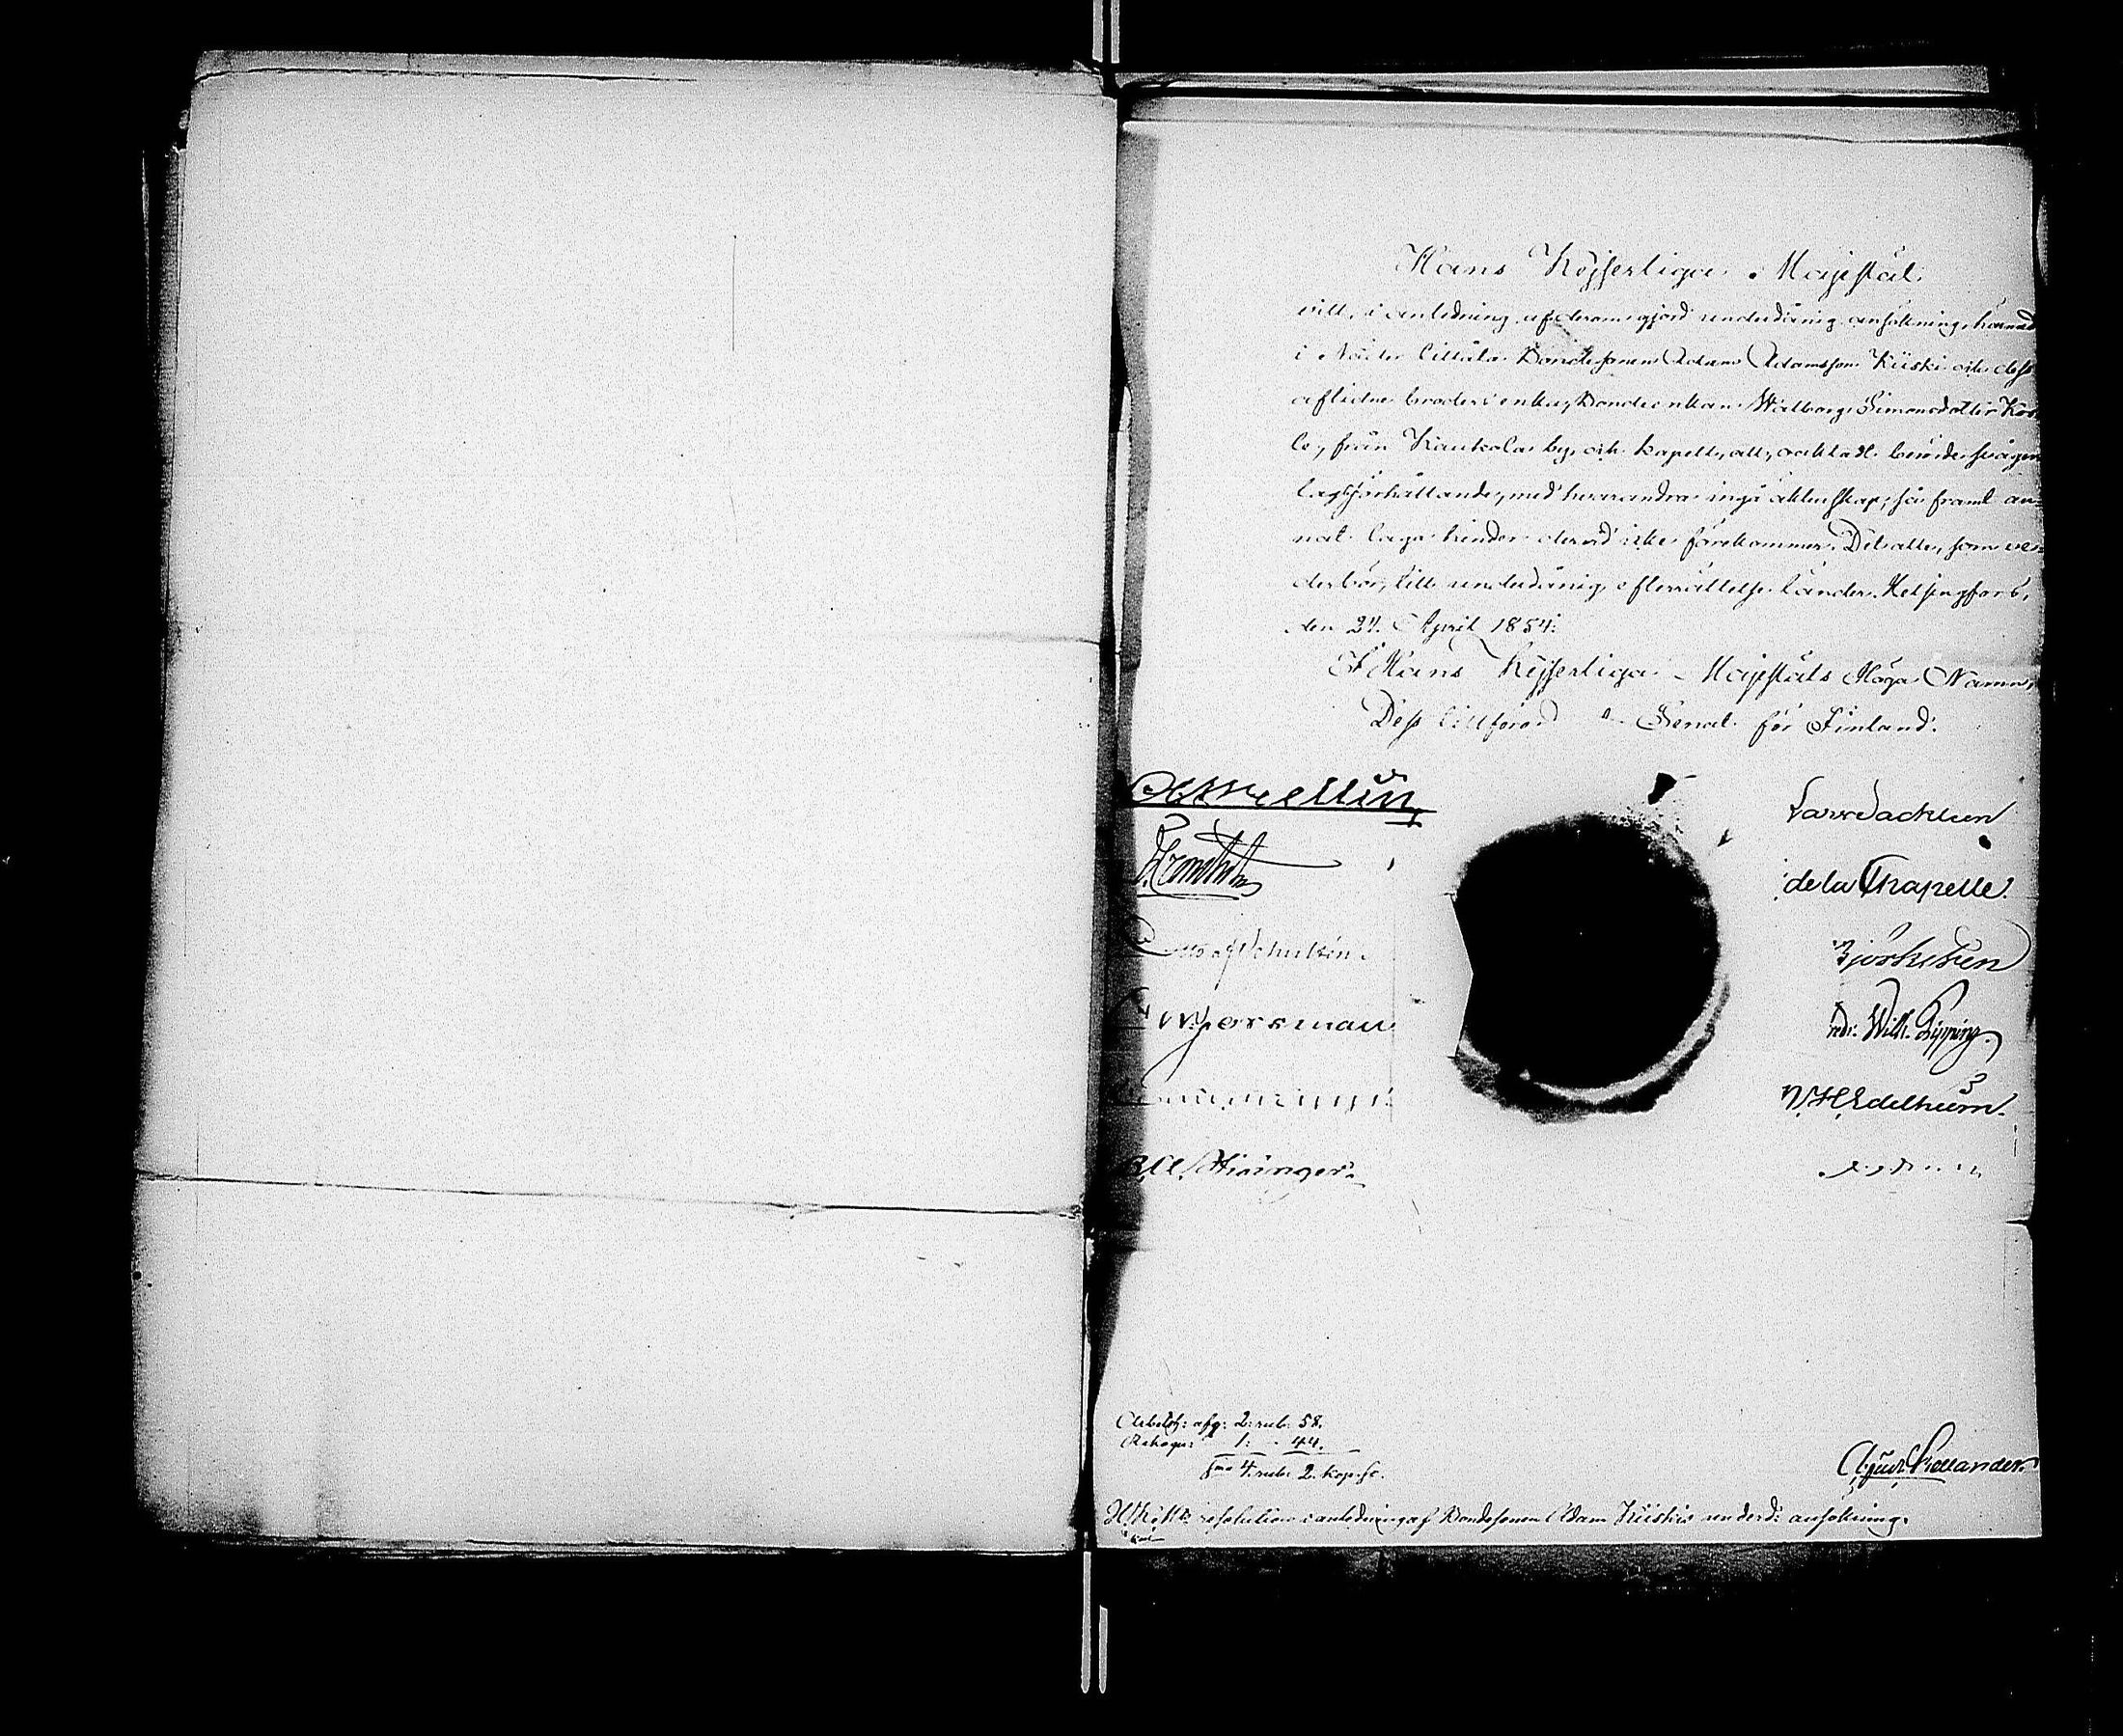 Hans Kejserliga Majestät
vill, i anledning af derom gjord underdånig ansökning, härmed
i Nåder tillåta Bondesonen Adam Adamsson Kiiski och dess
aflidne broders enka, Bondeenkan Walborg Simonsdotter
från Kaukola by och kapell, att, oaktadt berörde svåger-
lagsförhållande, med hvarandra ingå äktenskap, så framt an-
nat laga hinder dervid icke förekommer. Det alle, som ve-
derbör, till underdånig efterrättelse länder. Helsingfors,
den 24. April 1854.
I Hans Kejserliga Majestäts Höga Namn,
Dess tillförordnade Senat för Finland.
Lars Sackleen
de la Chapelle
af Schultén
Björksten
Gersman
Fredr. Wilh. Pipping
Edelheim
Hisinger
afg: 2 rub: 58.
1: - 44.
S:ma 4. rub: 2. kop. sr.
August
resolution i anledning af Bondesonen Adam Kiiskis underd: ansökning.